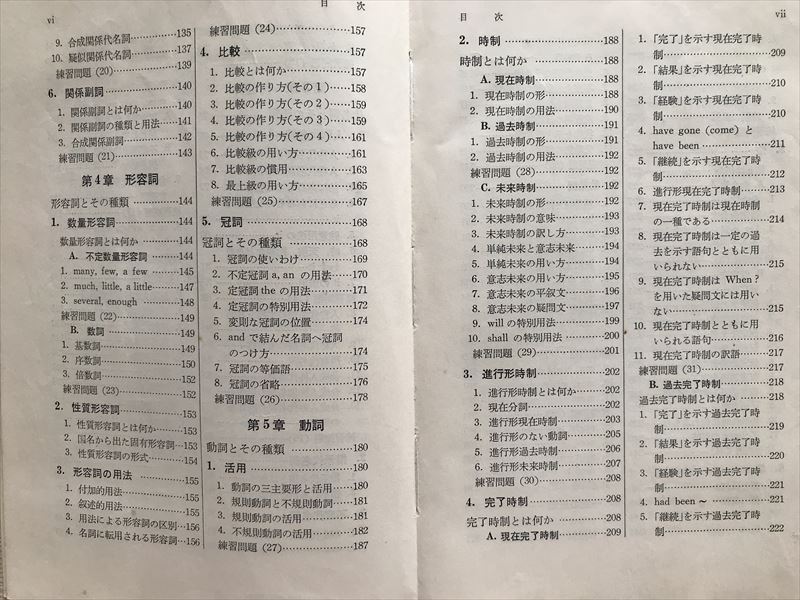 vi
目 次
9. 合成関係代名詞…………135
10. 疑似関係代名詞…………137
練習問題 (20)…………139
6. 関係副詞…………140
1. 関係副詞とは何か…………140
2. 関係副詞の種類と用法…………141
3. 合成関係副詞…………142
練習問題 (21)…………143
第4章 形容詞
形容詞とその種類…………144
1. 数量形容詞…………144
数量形容詞とは何か…………144
A. 不定数量形容詞…………144
1. many, few, a few…………145
2. much, little, a little…………147
3. several, enough…………148
練習問題 (22)…………149
B. 数詞…………149
1. 基数詞…………149
2. 序数詞…………150
3. 倍数詞…………152
練習問題 (23)…………152
2. 性質形容詞…………153
1. 性質形容詞とは何か…………153
2. 国名から出た固有形容詞…153
3. 性質形容詞の形式…………154
3. 形容詞の用法…………155
1. 付加的用法…………155
2. 叙述的用法…………155
3. 用法による形容詞の区別…156
4. 名詞に転用される形容詞…156
練習問題 (24)…………157
4. 比較…………157
1. 比較とは何か…………157
2. 比較の作り方(その1)……158
3. 比較の作り方(その2)……159
4. 比較の作り方(その3)……159
5. 比較の作り方(その4)……161
6. 比較級の用い方…………161
7. 比較級の慣用…………163
8. 最上級の用い方…………165
練習問題 (25)…………167
5. 冠詞…………168
冠詞とその種類…………168
1. 冠詞の使いわけ…………169
2. 不定冠詞 a, an の用法……170
3. 定冠詞 the の用法…………171
4. 定冠詞の特別用法…………172
5. 変則な冠詞の位置…………174
6. and で結んだ名詞へ冠詞
のつけ方…………174
7. 冠詞の等価語…………175
8. 冠詞の省略…………176
練習問題 (26)…………178
第5章 動詞
動詞とその種類…………180
1. 活用…………180
1. 動詞の三主要形と活用……180
2. 規則動詞と不規則動詞……181
3. 規則動詞の活用…………181
4. 不規則動詞の活用…………182
練習問題 (27)…………187
目 次
vii
2. 時制…………188
時制とは何か…………188
A. 現在時制…………188
1. 現在時制の形…………188
2. 現在時制の用法…………190
B. 過去時制…………191
1. 過去時制の形…………191
2. 過去時制の用法…………192
練習問題 (28)…………192
C. 未来時制…………192
1. 未来時制の形…………193
2. 未来時制の意味…………193
3. 未来時制の訳し方…………193
4. 単純未来と意志未来………194
5. 単純未来の用い方…………194
6. 意志未来の用い方…………195
7. 意志未来の平叙文…………196
8. 意志未来の疑問文…………197
9. will の特別用法…………199
10. shall の特別用法…………200
練習問題 (29)…………201
3. 進行形時制…………202
1. 進行形時制とは何か………202
2. 現在分詞…………202
3. 進行形現在時制…………203
4. 進行形のない動詞…………205
5. 進行形過去時制…………206
6. 進行形未来時制…………207
練習問題 (30)…………208
4. 完了時制…………208
完了時制とは何か…………208
A. 現在完了時制…………209
1. 「完了」を示す現在完了時
制…………209
2. 「結果」を示す現在完了時
制…………210
3. 「経験」を示す現在完了時
制…………210
4. have gone (come) と
have been…………211
5. 「継続」を示す現在完了時
制…………212
6. 進行形現在完了時制………213
7. 現在完了時制は現在時制
の一種である…………214
8. 現在完了時制は一定の過
去を示す語句とともに用
いられない…………215
9. 現在完了時制は When?
を用いた疑問文には用い
ない…………215
10. 現在完了時制とともに用
いられる語句…………216
11. 現在完了時制の訳語………217
練習問題 (31)…………217
B. 過去完了時制…………218
過去完了時制とは何か………218
1. 「完了」を示す過去完了時
制…………219
2. 「結果」を示す過去完了時
制…………220
3. 「経験」を示す過去完了時
制…………221
4. had been ～…………221
5. 「継続」を示す過去完了時
制…………222